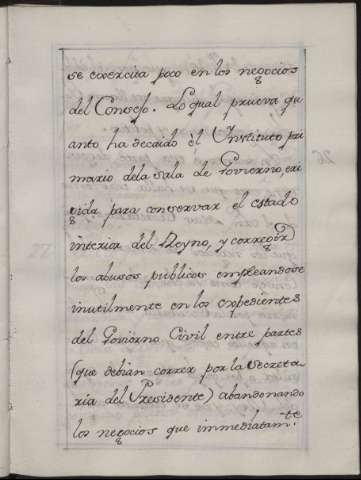 se exercita poco en los negocios
del Consejo. Lo qual prueva qu
anto ha decaido èl Ynstituto pri
mario dela Sala de Govierno, exi
vida para conservar el estado
interior del Reyno, y corregir
los abusos publicos empleandose
inutilmente en los expedientes
del Goviérno Civil entre partes
(que debian correr por la Secreta
ria del Presidente) abandonando
los negocios que immediatam.te